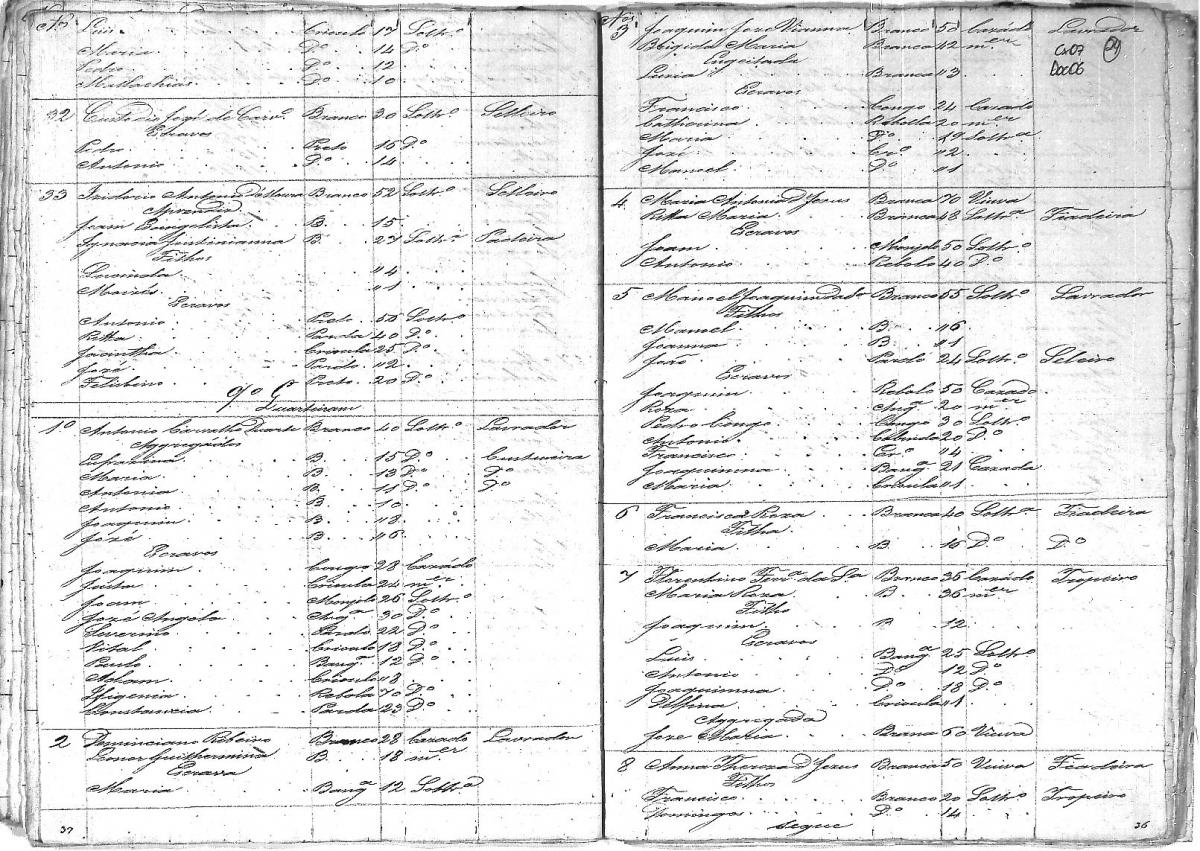 Nº Luis Crioulo 17 Solthº
Maria Dº 14 Dº
Pedro Dº 12
Mathathias Dº 10
32 Custodio José de Carvº Branco 30 Solthº Selleiro
Escravos
Pedro Preto 16 Dº
Antonio Dº 14
33 Izidorio Antonio Branco 52 Solthº Selleiro
Aprendiz
Joam Evangelista B. 15
Ignacia Justinianna B. 27 Solthª
Filhos
"4
"1
Escravos
Antonio Preto 50 Solthº
Ritta Parda 40 Dº
Jacintha Crioula 25 Dº
José Pardo "2
Felisbino Preto 20 Dº
Quarteiram
1º Antonio Carvalho Duarte Branco 40 Solthº Lavrador
Aggregados
Eufrazina B. 15 Dº Custureira
Maria B. 13 Dº Dº
Antonia B. 11 Dº Dº
Antonio B. 10
Joaquim B. "8
José B. "6
Escravos
Joaquim Congo 28 Cazado
Justa Crioula 24 mer
Joam Monjolo 26 Solthº
José Angola Angª 30 Dº
Severino Pardo 22 Dº
Vital Crioulo 18 Dº
Paulo Bangª 12 Dº
Adam Crioulo "8
Ifigenia Rebola 70 Dº
Constancia Parda 23 Dº
2 Dominciano Ribeiro Branco 28 Cazado Lavrador
Leonor Guilhermina B. 18 mer
Escrava
Maria Bangª 12 Solthª
37
Nos
3 Joaquim José Vianna Branco 50 Cazado Lavrador
Brigida Maria Branca 42 mer
Cx07
Doc06
29
Engeitada
Luzia Branca "3
Escravos
Francisco Congo 24 Cazado
Catherina Rebolla 20 mer
Maria Dº 19 Solthª
José Crº "2
Manoel Dº "1
4 Maria Antonia d'Jesus Branca 70 Viuva
Ritta Maria Branca 48 Solthª Fiadeira
Escravos
Joam Monjolo 50 Solthº
Antonio Rebolo 40 Dº
5 Manoel Joaquim Branco 55 Solthº Lavrador
Filhos
Manoel B. "6
Joanna B. "1
João Pardo 24 Solthº Seleiro
Escravos
Joaquim Rebolo 50 Cazado
Roza Angª 20 mer
Pedro Congo Congo 30 Solthº
Antonio Cabinda 20 Dº
Francisco Crº "4
Joaquimna Bangª 21 Cazada
Maria Crioula "1
6 Francisca Roza Branca 40 Solthª Fiadeira
Filha
Maria B. 16 Dº Dº
7 Florentino Ferrª da Sª Branco 36 Cazado Tropeiro
Maria Roza B. 36 mer
Filho
Joaquim B 12
Escravos
Luis Bangª 25 Solthº
Antonio Dº 12 Dº
Joaquimna Dº 18 Dº
Delfina Crioula "1
Aggregada
Joze Maria Branca 60 Viuva
8 Anna Thereza d'Jezus Branca 50 Viuva Fiadeira
Filhos
Francisco Branco 20 Solthº Tropeiro
Domingos Dº 14
Segue
36